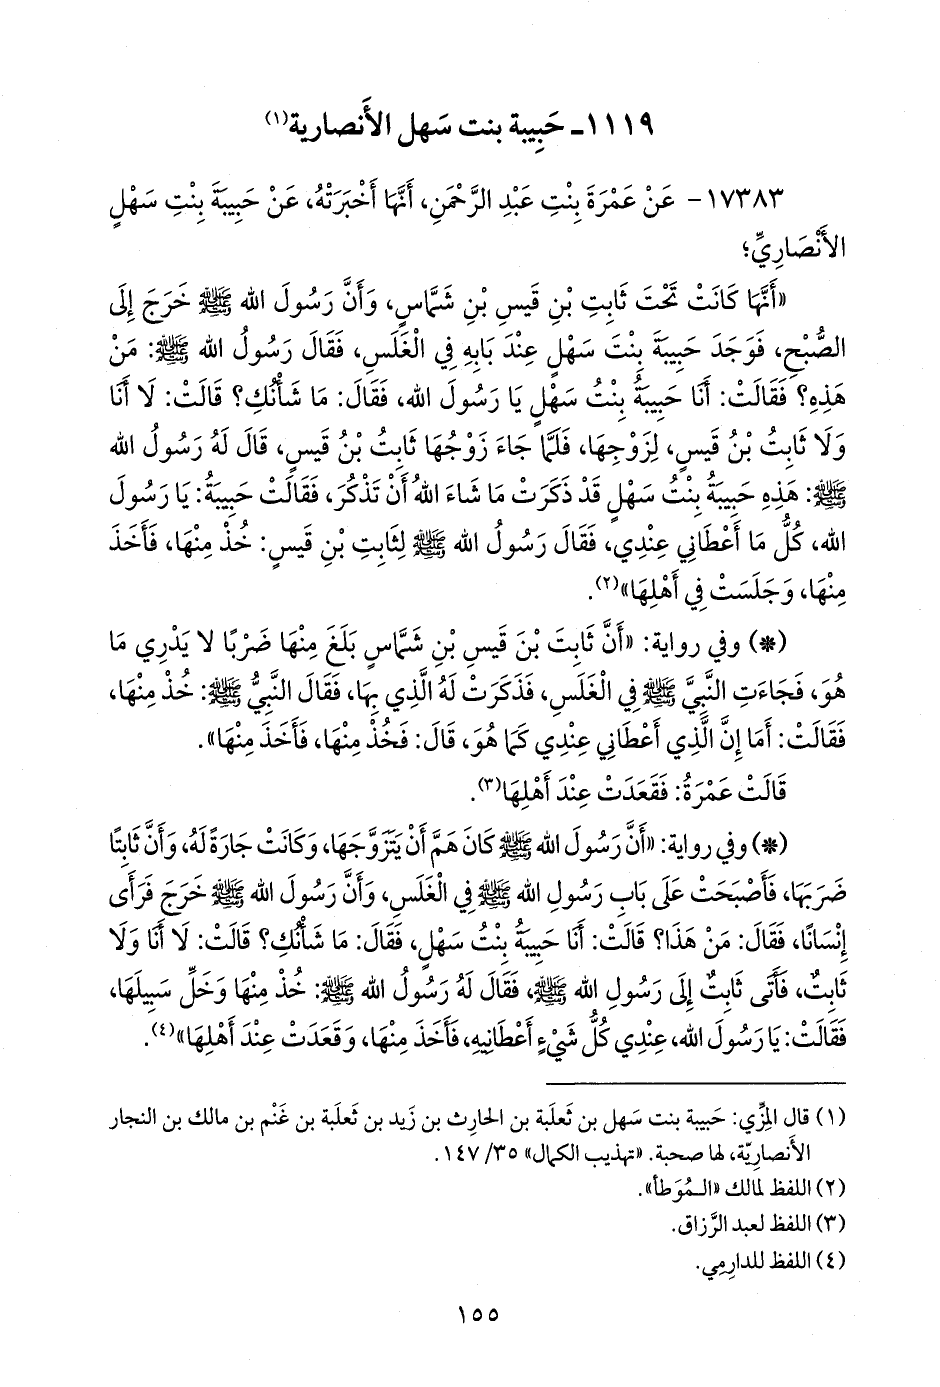 ١١١٩ـ حَبِيبة بنت سَهل الأَنصارية(١)
١٧٣٨٣- عَنْ عَمْرَةَ بِنْتِ عَبْدِ الرَّحْمَنِ، أَنَّهَا أَخْبَرَتْهُ، عَنْ حَبِيبَةَ بِنْتِ سَهْلٍ
الأَنْصَارِيِّ؛
«أَنَّهَا كَانَتْ تَحْتَ ثَابِتِ بْنِ قَيسِ بْنِ شَمَّاسٍ، وَأَنَّ رَسُولَ الله ﷺ خَرَجَ إِلَى
الصُّبْحِ، فَوَجَدَ حَبِيبَةَ بِنْتَ سَهْلٍ عِنْدَ بَابِهِ فِي الْغَلَسِ، فَقَالَ رَسُولُ الله ﷺ: مَنْ
هَذِهِ؟ فَقَالَتْ: أَنَا حَبِيبَةُ بِنْتُ سَهْلٍ يَا رَسُولَ الله، فَقَالَ: مَا شَأْنُكِ؟ قَالَتْ: لَا أَنَا
وَلَا ثَابِتُ بْنُ قَيسٍ، لِزَوْجِهَا، فَلَمَّا جَاءَ زَوْجُهَا ثَابِتُ بْنُ قَيسٍ، قَالَ لَهُ رَسُولُ الله
ﷺ: هَذِهِ حَبِيبَةُ بِنْتُ سَهْلٍ قَدْ ذَكَرَتْ مَا شَاءَ اللهُ أَنْ تَذْكُرَ، فَقَالَتْ حَبِيبَةُ: يَا رَسُولَ
الله، كُلُّ مَا أَعْطَانِي عِنْدِي، فَقَالَ رَسُولُ الله ﷺ لِثَابِتِ بْنِ قَيسٍ: خُذْ مِنْهَا، فَأَخَذَ
مِنْهَا، وَجَلَسَتْ فِي أَهْلِهَا»(٢).
(*) وفي رواية: «أَنَّ ثَابِتَ بْنَ قَيسِ بْنِ شَمَّاسٍ بَلَغَ مِنْهَا ضَرْبًا لا يَدْرِي مَا
هُوَ، فَجَاءَتِ النَّبِيَّ ﷺ فِي الْغَلَسِ، فَذَكَرَتْ لَهُ الَّذِي بِهَا، فَقَالَ النَّبِيُّ ﷺ: خُذْ مِنْهَا،
فَقَالَتْ: أَمَا إِنَّ الَّذِي أَعْطَانِي عِنْدِي كَمَا هُوَ، قَالَ: فَخُذْ مِنْهَا، فَأَخَذَ مِنْهَا».
قَالَتْ عَمْرَةُ: فَقَعَدَتْ عِنْدَ أَهْلِهَا(٣).
(*) وفي رواية: «أَنَّ رَسُولَ الله ﷺ كَانَ هَمَّ أَنْ يَتَزَوَّجَهَا، وَكَانَتْ جَارَةً لَهُ، وَأَنَّ ثَابِتًا
ضَرَبَهَا، فَأَصْبَحَتْ عَلَى بَابِ رَسُولِ الله ﷺ فِي الْغَلَسِ، وَأَنَّ رَسُولَ الله ﷺ خَرَجَ فَرَأَى
إِنْسَانًا، فَقَالَ: مَنْ هَذَا؟ قَالَتْ: أَنَا حَبِيبَةُ بِنْتُ سَهْلٍ، فَقَالَ: مَا شَأْنُكِ؟ قَالَتْ: لَا أَنَا وَلَا
ثَابِتٌ، فَأَتَى ثَابِتٌ إِلَى رَسُولِ الله ﷺ، فَقَالَ لَهُ رَسُولُ الله ﷺ: خُذْ مِنْهَا وَخَلِّ سَبِيلَهَا،
فَقَالَتْ: يَا رَسُولَ الله، عِنْدِي كُلُّ شَيْءٍ أَعْطَانِيهِ، فَأَخَذَ مِنْهَا، وَقَعَدَتْ عِنْدَ أَهْلِهَا»(٤).
(١) قال المِزِّي: حَبيبة بنت سَهل بن ثَعلَبة بن الحارِث بن زَيد بن ثَعلَبة بن غَنْم بن مالك بن النجار
الأَنصاريّة، لها صحبة. «تهذيب الكمال» ٣٥/ ١٤٧.
(٢) اللفظ لمالك «المُوَطأ».
(٣) اللفظ لعبد الرَّزاق.
(٤) اللفظ للدارِمِي.
١٥٥